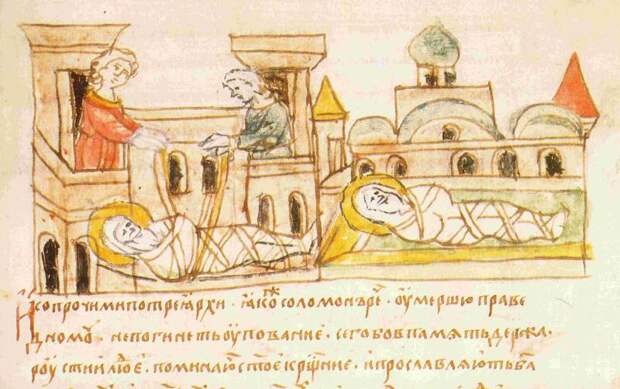 ꙗко прочими потреꙗрхи · ꙗкоⷤ соломонъ рч҃е · оумершю праве
дномоу · непогинеть оупование · сегобо впамѧть держа ·
роустии люⷣе · поминаюⷮ с҃тое кр҃щние · ипрославлѧють б҃а